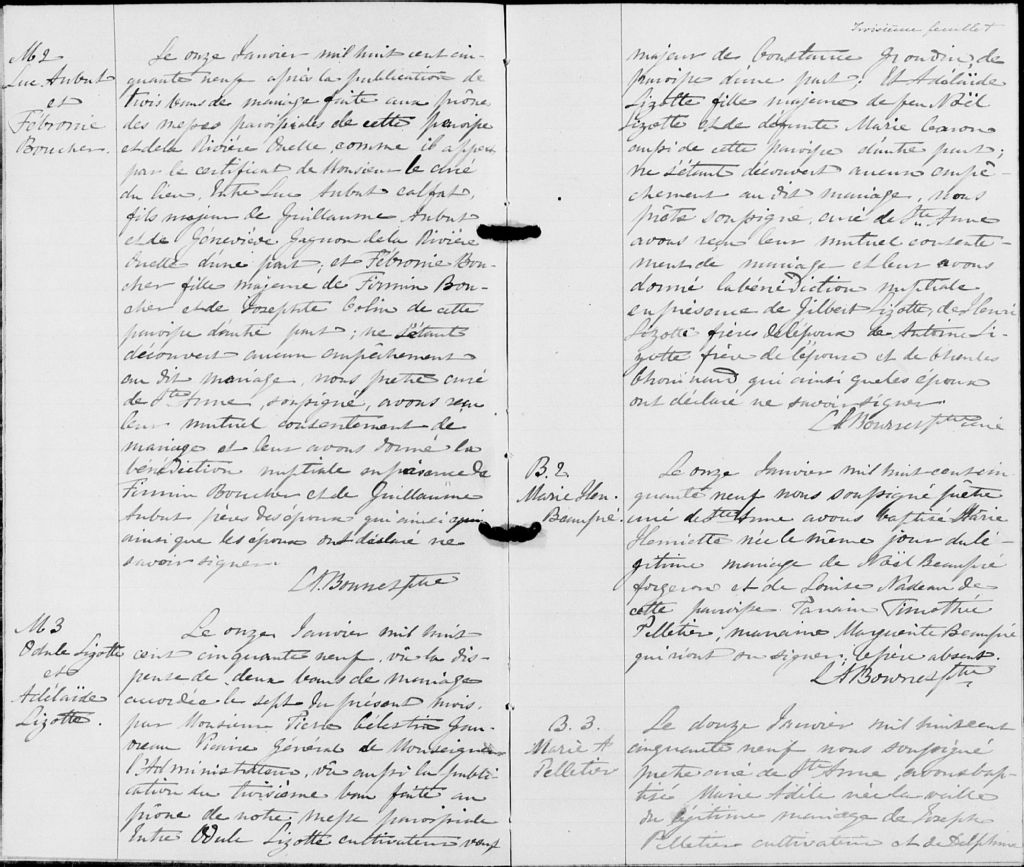 M 2
Luc Aubut
et
Fébronie
Boucher.
Le onze Janvier mil huit cent cin-
quante neuf après la publication de
trois bans de mariage faite aux prône
des messes paroissiales de cette paroisse
et de la Rivière Ouelle, comme il appert
par le certificat de Monsieur le curé
du lieu, Entre Luc Aubut calfat,
fils majeur de Guillaume Aubut
et de Géneviève Gagnon de la Rivière
Ouelle d'une part; et Fébronie Bou-
cher fille majeure de Firmin Bou-
cher et de Josephte Colin de cette
paroisse d'autre part; ne s'étant
découvert aucun empêchement
au dit mariage, nous prêtre curé
de Ste Anne, soussigné, avons reçu
leur mutuel consentement de
mariage et leur avons donné la
bénédiction nuptiale en présence de
Firmin Boucher et de Guillaume
Aubut pères des époux qui ainsi
ainsi que les époux ont déclaré ne
savoir signer.
L. A. Bourret Ptre
M 3
Odule Lizotte
et
Adélaïde
Lizotte.
Le onze Janvier mil huit
cent cinquante neuf, vû la dis-
pense de deux bans de mariage
accordée le sept du présent mois,
par Monsieur Pierre Célestin Gau-
vreau Vicaire Général de Monseigneur
l'Administrateur, vû aussi la publi-
cation du troisième ban faite au
prône de notre messe paroissiale
Entre Odule Lizotte cultivateur veuf
Troisième feuillet
majeur de Constance Grondin, de
paroisse d'une part; Et Adélaïde
Lizotte fille majeure de feu Noël
Lizotte et de défunte Marie Caron
aussi de cette paroisse d'autre part;
ne s'étant découvert aucun empê-
chement au dit mariage, nous
prêtre soussigné, curé de Ste Anne
avons reçu leur mutuel consente-
ment de mariage et leur avons
donné la bénédiction nuptiale
en présence de Gilbert Lizotte, de Henri
Lizotte frères de l'époux de Antoine Li-
zotte frère de l'épouse et de Charles
Chouinard qui ainsi que les époux
ont déclaré ne savoir signer.
L A Bourret Ptre curé
B. 2
Marie Hen.
Beaupré.
Le onze Janvier mil huit cent cin-
quante neuf nous soussigné prêtre
curé de Ste Anne avons baptisé Marie
Henriette née le même jour du lé-
gitime mariage de Noël Beaupré
forgeron et de Louise Nadeau de
cette paroisse. Parrain Timothée
Pelletier, marraine Marguerite Beaupré
qui n'ont su signer, le père absent.
L. A Bourret Ptre
B. 3.
Marie A
Pelletier
Le douze Janvier mil huit cent
cinquante neuf nous soussigné
prêtre curé de Ste Anne, avons bap-
tisé Marie Adèle née la veille
du légitime mariage de Joseph
Pelletier cultivateur et de Delphine